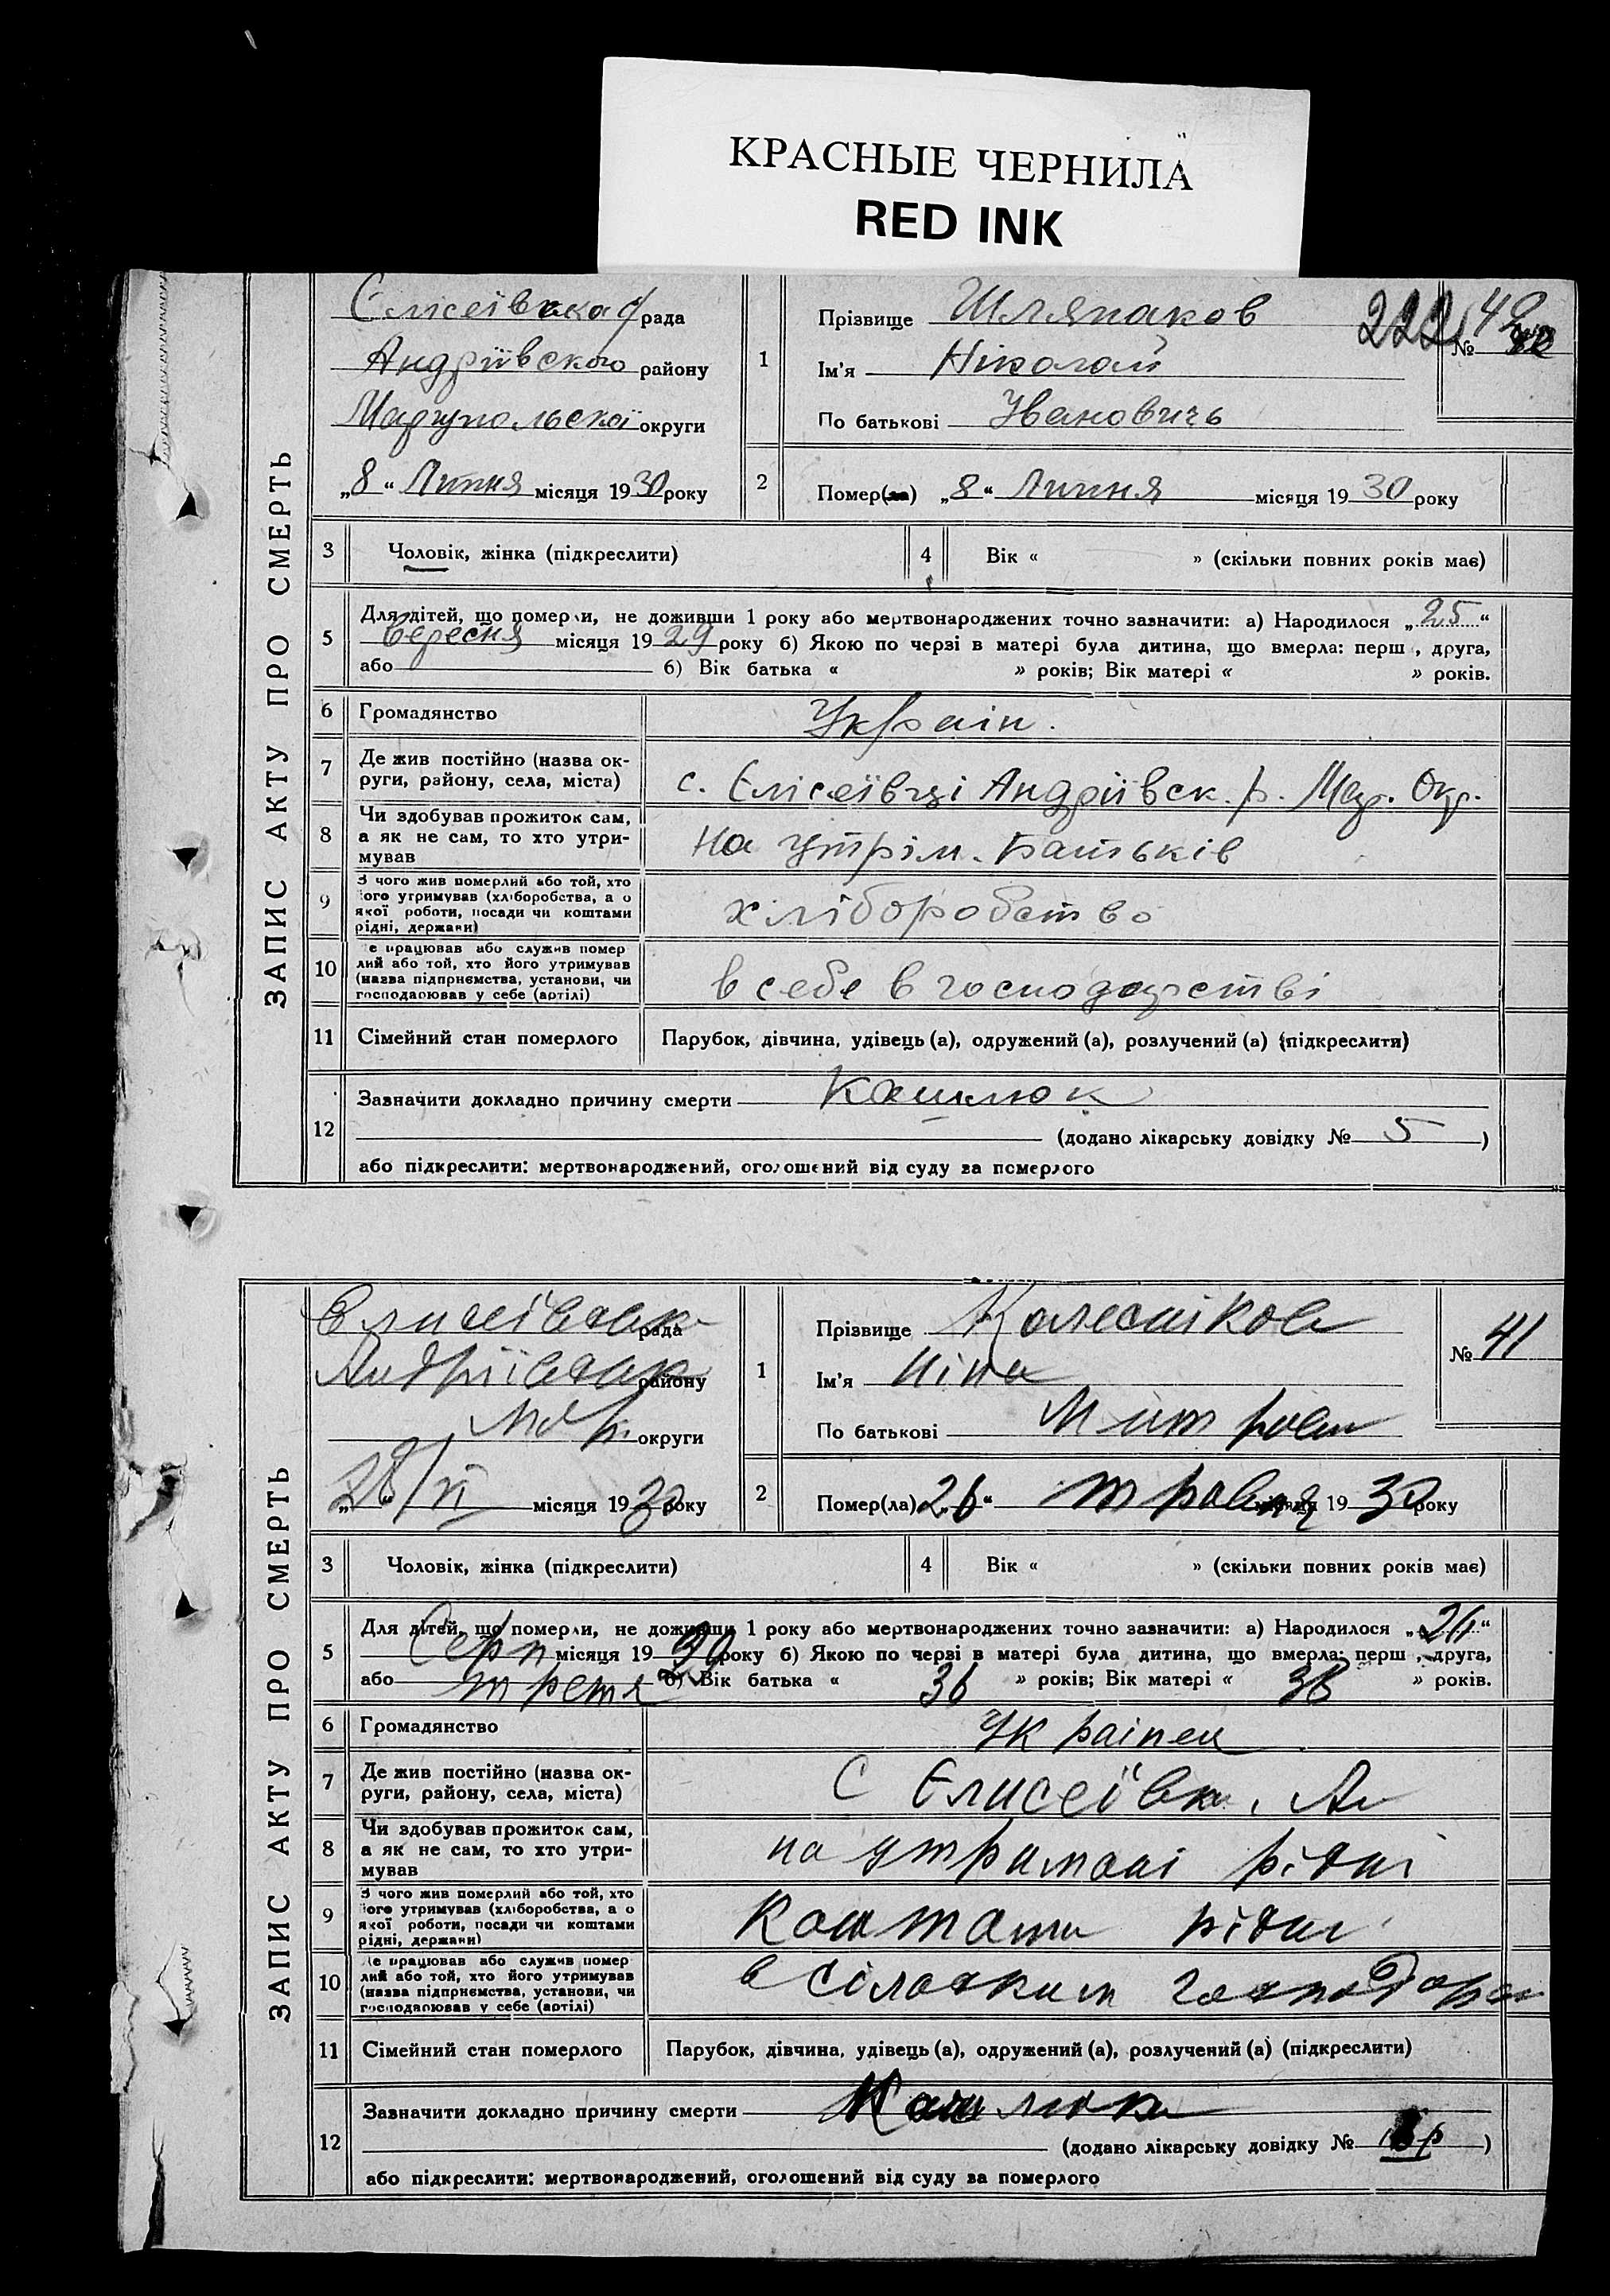 КРАСНЫЕ ЧЕРНИЛА
RED INK
ЗАПИС АКТУ ПРО СМЕРТЬ
Єлісеївска с/рада
Андріївского району
Маріупольскої округи
„8“ Липня місяця 1930 року
1
Прізвище Шляпаков
Ім'я Ніколай
По батькові Івановичь
222
№ 42
2
Помер(ла) „8“ Липня місяця 1930 року
3 Чоловік, жінка (підкреслити)
4 Вік « » (скільки повних років має)
5 Для дітей, що померли, не доживши 1 року або мертвонароджених точно зазначити: а) Народилося „25“
Вересня місяця 1929 року б) Якою по черзі в матері була дитина, що вмерла: перш , друга,
або б) Вік батька « » років; Вік матері « » років.
6 Громадянство Україн.
7 Де жив постійно (назва округи, району, села, міста) с. Єлісеївці Андріївск. р. Мар. Окр.
8 Чи здобував прожиток сам, а як не сам, то хто утримував на утрім. батьків
9 З чого жив померлий або той, хто його утримував (хліборобства, а о якої роботи, посади чи коштами рідні, держави) хліборобство
10 Де працював або служив померлий або той, хто його утримував (назва підприємства, установи, чи господарював у себе (артілі) в себе в господарстві
11 Сімейний стан померлого Парубок, дівчина, удівець (а), одружений (а), розлучений (а) (підкреслити)
12 Зазначити докладно причину смерти Кашлюк
(додано лікарську довідку № 5 )
або підкреслити: мертвонароджений, оголошений від суду за померлого
ЗАПИС АКТУ ПРО СМЕРТЬ
Єлисеївськ рада
Андріївськ району
Мар. округи
„28“/VI місяця 1930 року
1
Прізвище Колеснікова
Ім'я Ніна
По батькові Митров
№ 41
2
Помер(ла) „26“ травня місяця 1930 року
3 Чоловік, жінка (підкреслити)
4 Вік « » (скільки повних років має)
5 Для дітей, що померли, не доживши 1 року або мертвонароджених точно зазначити: а) Народилося „26“
Серп місяця 1929 року б) Якою по черзі в матері була дитина, що вмерла: перш , друга,
або третя б) Вік батька « 36 » років; Вік матері « 36 » років.
6 Громадянство Українец
7 Де жив постійно (назва округи, району, села, міста) С Єлисеївка, Ан
8 Чи здобував прожиток сам, а як не сам, то хто утримував на утримані рідні
9 З чого жив померлий або той, хто його утримував (хліборобства, а о якої роботи, посади чи коштами рідні, держави) Коштами рідні
10 Де працював або служив померлий або той, хто його утримував (назва підприємства, установи, чи господарював у себе (артілі) в сільским господарс
11 Сімейний стан померлого Парубок, дівчина, удівець (а), одружений (а), розлучений (а) (підкреслити)
12 Зазначити докладно причину смерти Кашлюк
(додано лікарську довідку № )
або підкреслити: мертвонароджений, оголошений від суду за померлого